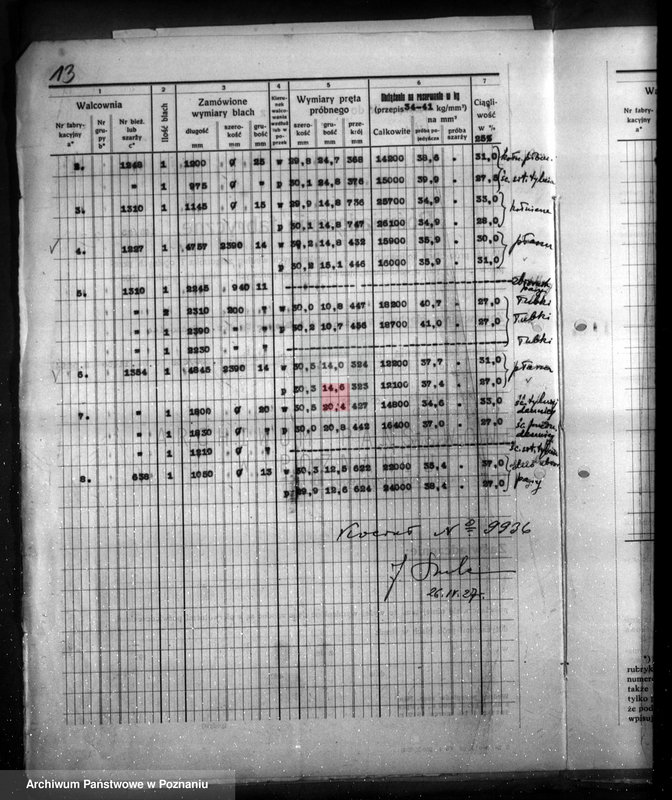 13
1 2 3 4 5 6 7
Walcownia Ilość blach Zamówione wymiary blach Kierunek walcowania wzdłuż w poprzek Wymiary pręta próbnego Obciążenie na rozerwanie w kg (przepis 34-41 kg/mm²) na mm² Ciągliwość w % 25%
Nr fabrykacyjny a* Nr grupy b* Nr bież. lub szarży c* długość mm szerokość mm grubość mm szerokość mm grubość mm przekrój mm Całkowite próba pojedyńcza próba szarży
2. 1248 1 1200 ø 25 w 29,8 24,7 368 14200 38,6 " 31,0
" 1 975 ø " p 30,1 24,8 376 15000 39,9 " 27,5
3. 1310 1 1145 ø 15 w 29,9 14,8 736 25700 34,9 " 33,0
p 30,1 14,8 747 26100 34,9 " 28,0
4. 1227 1 4757 2390 14 w 29,2 14,8 432 15900 35,9 " 30,0
p 30,2 15,1 446 16000 35,9 " 31,0
5. 1310 1 2245 940 11
" 2 2310 200 7 w 30,0 10,8 447 18200 40,7 " 27,0 Łubki
" 1 2390 " " p 30,2 10,7 456 18700 41,0 " 27,0 Łubki
" 1 2230 " 7 Łubki
6. 1354 1 4845 2390 14 w 30,5 14,0 324 12200 37,7 " 31,0
p 30,3 14,6 323 12100 37,4 " 27,0
7. " 1 1800 ø 20 w 30,5 20,4 427 14800 34,6 " 33,0
" 1 1830 ø 7 p 30,0 20,8 442 16400 37,0 " 27,0
" 1 1210 ø "
8. 658 1 1050 ø 13 w 30,3 12,5 622 22000 35,4 " 37,0
p 29,9 12,6 624 24000 38,4 " 27,0
Kocioł № 9936
26.IV.27r.
*)
rubryk
numero
także
tylko p
że pod
wpisuj
Archiwum Państwowe w Poznaniu